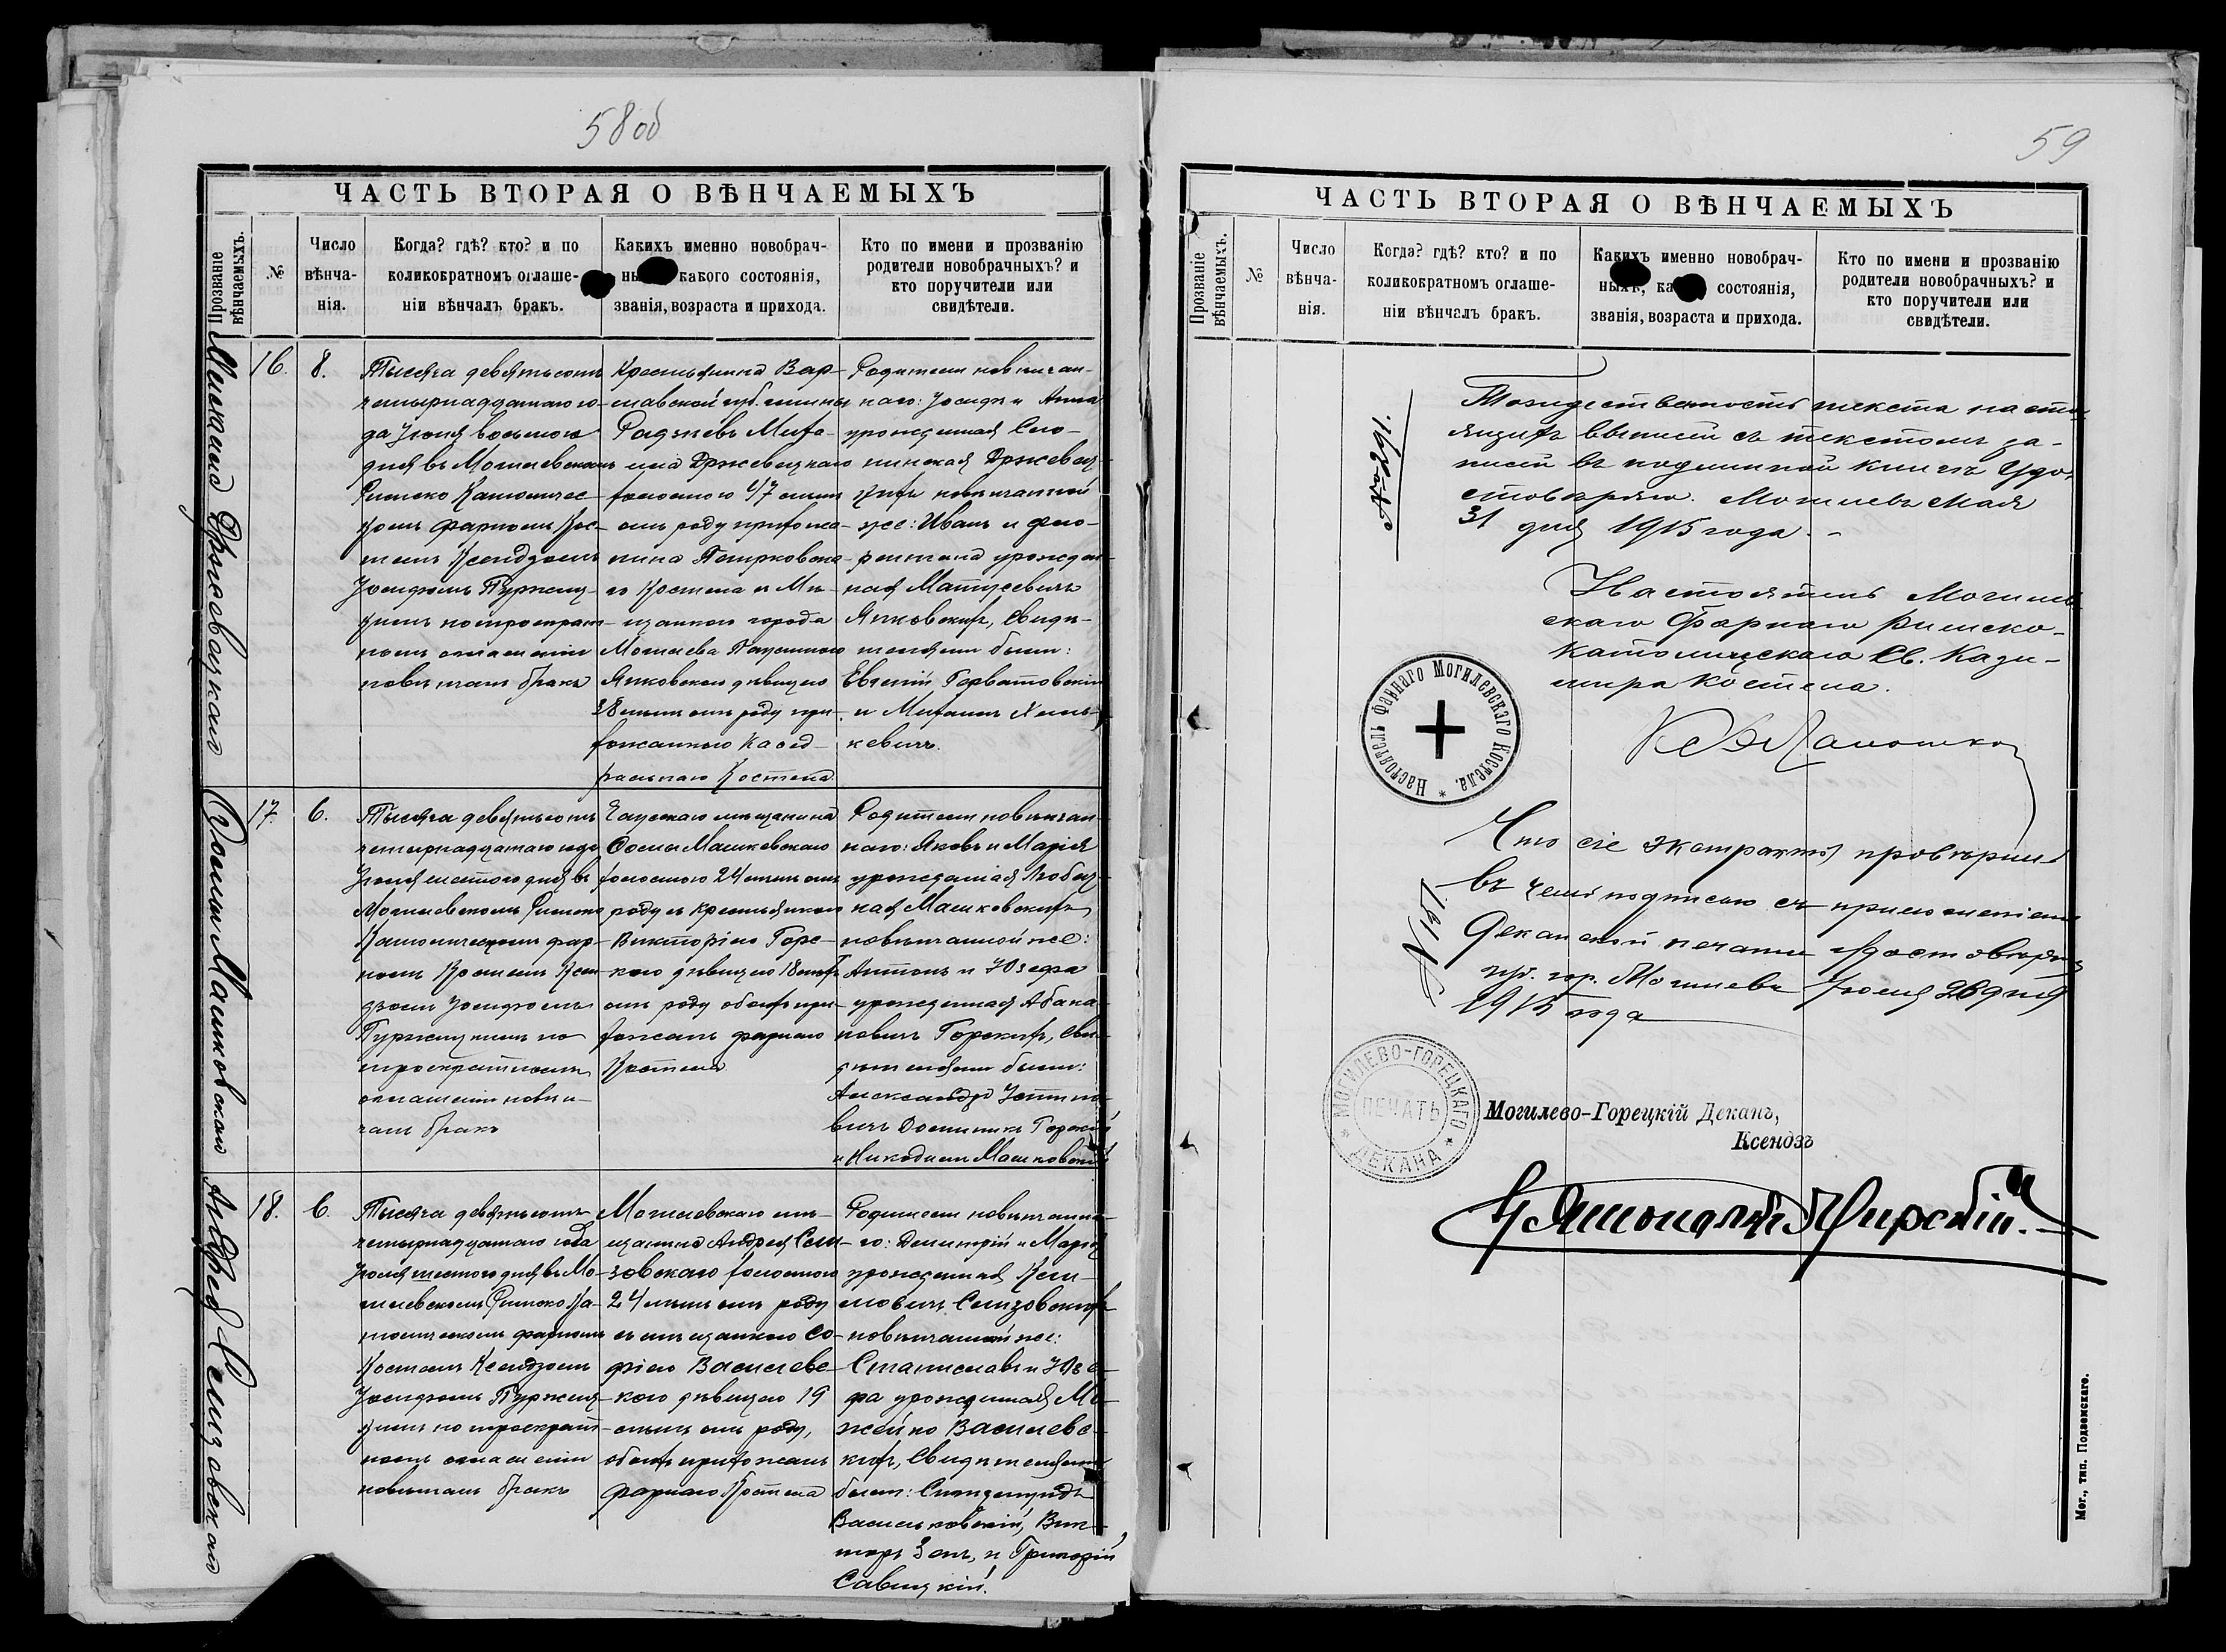 58об
ЧАСТЬ ВТОРАЯ О ВѢНЧАЕМЫХЪ
Прозваніе вѣнчаемыхъ.
№
Число вѣнча-нія.
Когда? гдѣ? кто? и по
коликократномъ оглаше-
ніи вѣнчалъ бракъ.
Какихъ именно новобрач-
ны какого состоянія,
званія, возраста и прихода.
Кто по имени и прозванію
родители новобрачныхъ? и
кто поручители или
свидѣтели.
Михаила Држевецкаго
16.
8.
Тысяча девятьсотъ
четырнадцатаго го-
да Іюня восьмого
дня въ Могилевскомъ
Римско Католичес-
комъ фарномъ Кос-
телѣ Ксендзомъ
Іосифомъ Пуржиц-
кимъ по троекрат-
номъ оглашеніи
повѣнчанъ бракъ
Крестьянина Вар-
шавской губ. гмины
Радзѣевъ Миха-
ила Држевецкаго
холостого 47 лѣтъ
отъ роду прихожа-
нина Петрковска-
го Костела и Мѣ-
щанкою города
Могилева Паулиною
Янковскою дѣвицею
38 лѣтъ отъ роду при-
хожанкою Каѳед-
ральнаго Костела
Родители новѣнчан-
наго: Іосифъ и Анна
урожденная Сло-
нинская Држевец-
кихъ новѣнчанной
же: Иванъ и Фло-
рентина урожден-
ная Матусевичъ
Янковскихъ, Свидѣ-
телями были:
Евгеній Горватовскій
и Михаилъ Хмѣль-
кевичъ.
Фомы Машковскаго
17.
6.
Тысяча девятьсотъ
четырнадцатаго года
Іюля шестого дня въ
Могилевскомъ Римско
Католическомъ фар-
номъ Костелѣ Ксен-
дзомъ Іосифомъ
Пуржицкимъ по
троекратномъ
оглашеніи повѣн-
чанъ бракъ
Чаускаго мѣщанина
Фомы Машковскаго
холостого 24 лѣтъ отъ
роду съ Крестьянкою
Викторіею Горс-
кою дѣвицею 18 лѣтъ
отъ роду обоихъ при-
хожанъ фарнаго
Костела
Родители новѣнчан-
наго: Яковъ и Марія
урожденная
ная Машковскихъ
новѣнчанной же:
Антонъ и Юзефа
урожденная Абака-
новичъ Горскихъ, Сви-
дѣтелями были:
Александръ
вичъ Доминикъ Горскій
и Никодимъ Машковскій
Андрея Слизовскаго
18.
6.
Тысяча девятьсотъ
четырнадцатаго года
Іюля шестого дня въ Мо-
гилевскомъ Римско Ка-
толическомъ фарномъ
Костелѣ Ксендзомъ
Іосифомъ Пуржиц-
кимъ по троекрат-
номъ оглашеніи
повѣнчанъ бракъ
Могилевскаго мѣ-
щанина Андрея Сли-
зовскаго холостого
24 лѣтъ отъ роду
съ мѣщанкою Со-
фіею Василевс-
кою дѣвицею 19
лѣтъ отъ роду,
обоихъ прихожанъ
фарнаго Костела
Родители новѣнчанна-
го: Димитрій и Марія
урожденная Кли-
мовичъ Слизовскихъ
новѣнчанной же:
Станиславъ и Юзе-
фа урожденная Мо-
жейко Василевс-
кихъ, Свидѣтелями
были: Сигизмундъ
Васильковскій, Вик-
торъ Зенъ, и Григорій
Савицкій.
59
ЧАСТЬ ВТОРАЯ О ВѢНЧАЕМЫХЪ
Прозваніе вѣнчаемыхъ.
№
Число вѣнча-нія.
Когда? гдѣ? кто? и по
коликократномъ оглаше-
ніи вѣнчалъ бракъ.
Какихъ именно новобрач-
ныхъ, ка состоянія,
званія, возраста и прихода.
Кто по имени и прозванію
родители новобрачныхъ? и
кто поручители или
свидѣтели.
Тождественность текста насто-
ящихъ выписи съ текстомъ за-
писи въ подлинной книгѣ удо-
стовѣряю. Могилевъ Мая
31 дня 1915 года.
Настоятель Могилев-
скаго Фарнаго Римско-
Католическаго Св. Кази-
мира Костела.
Настоятель Фарнаго Могилевскаго Костела.
Что сіе экстрактъ провѣрилъ
въ чемъ подписью съ приложеніемъ
Деканской печати удостовѣряю
губ. гор. Могилевъ Іюня 26 дня
1915 года
МОГИЛЕВО-ГОРЕЦКАГО ДЕКАНА
ПЕЧАТЬ
Могилево-Горецкій Деканъ,
Ксендзъ
Мог., тип. Подземскаго.